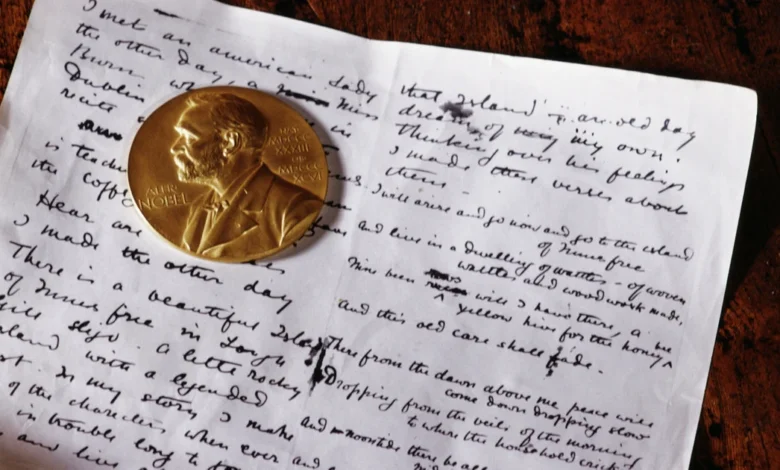 I met an american Lady
the other day, a Miss
Burn
Dublin
recite
is
is teach
the coffe
Hear are
I made the other day
There is a beautiful Isla
of Innis free in Lough
gill Sligo. A little rocky
Island with a legended
In my story I make
of the characters when ever
in trouble long to
and live
that Island
an old day
dream of my own.
Thinking over his feelings
I made these verses about
them -
I will arise and go now and go to the island
of Innis free
and live in a dwelling of wattles - of woven
wattles and wood work made,
Nine bean rows will I have there, a
yellow hive for the honey
And this old care shall fade.
There from the dawn above me peace will
come down dropping slow
Dropping from the veils of the morning
to where the household
and noontide there be all
ALFR.
NOBEL
NAT.
MDCCC
XXXIII
OB.
MDCCC
XCVI